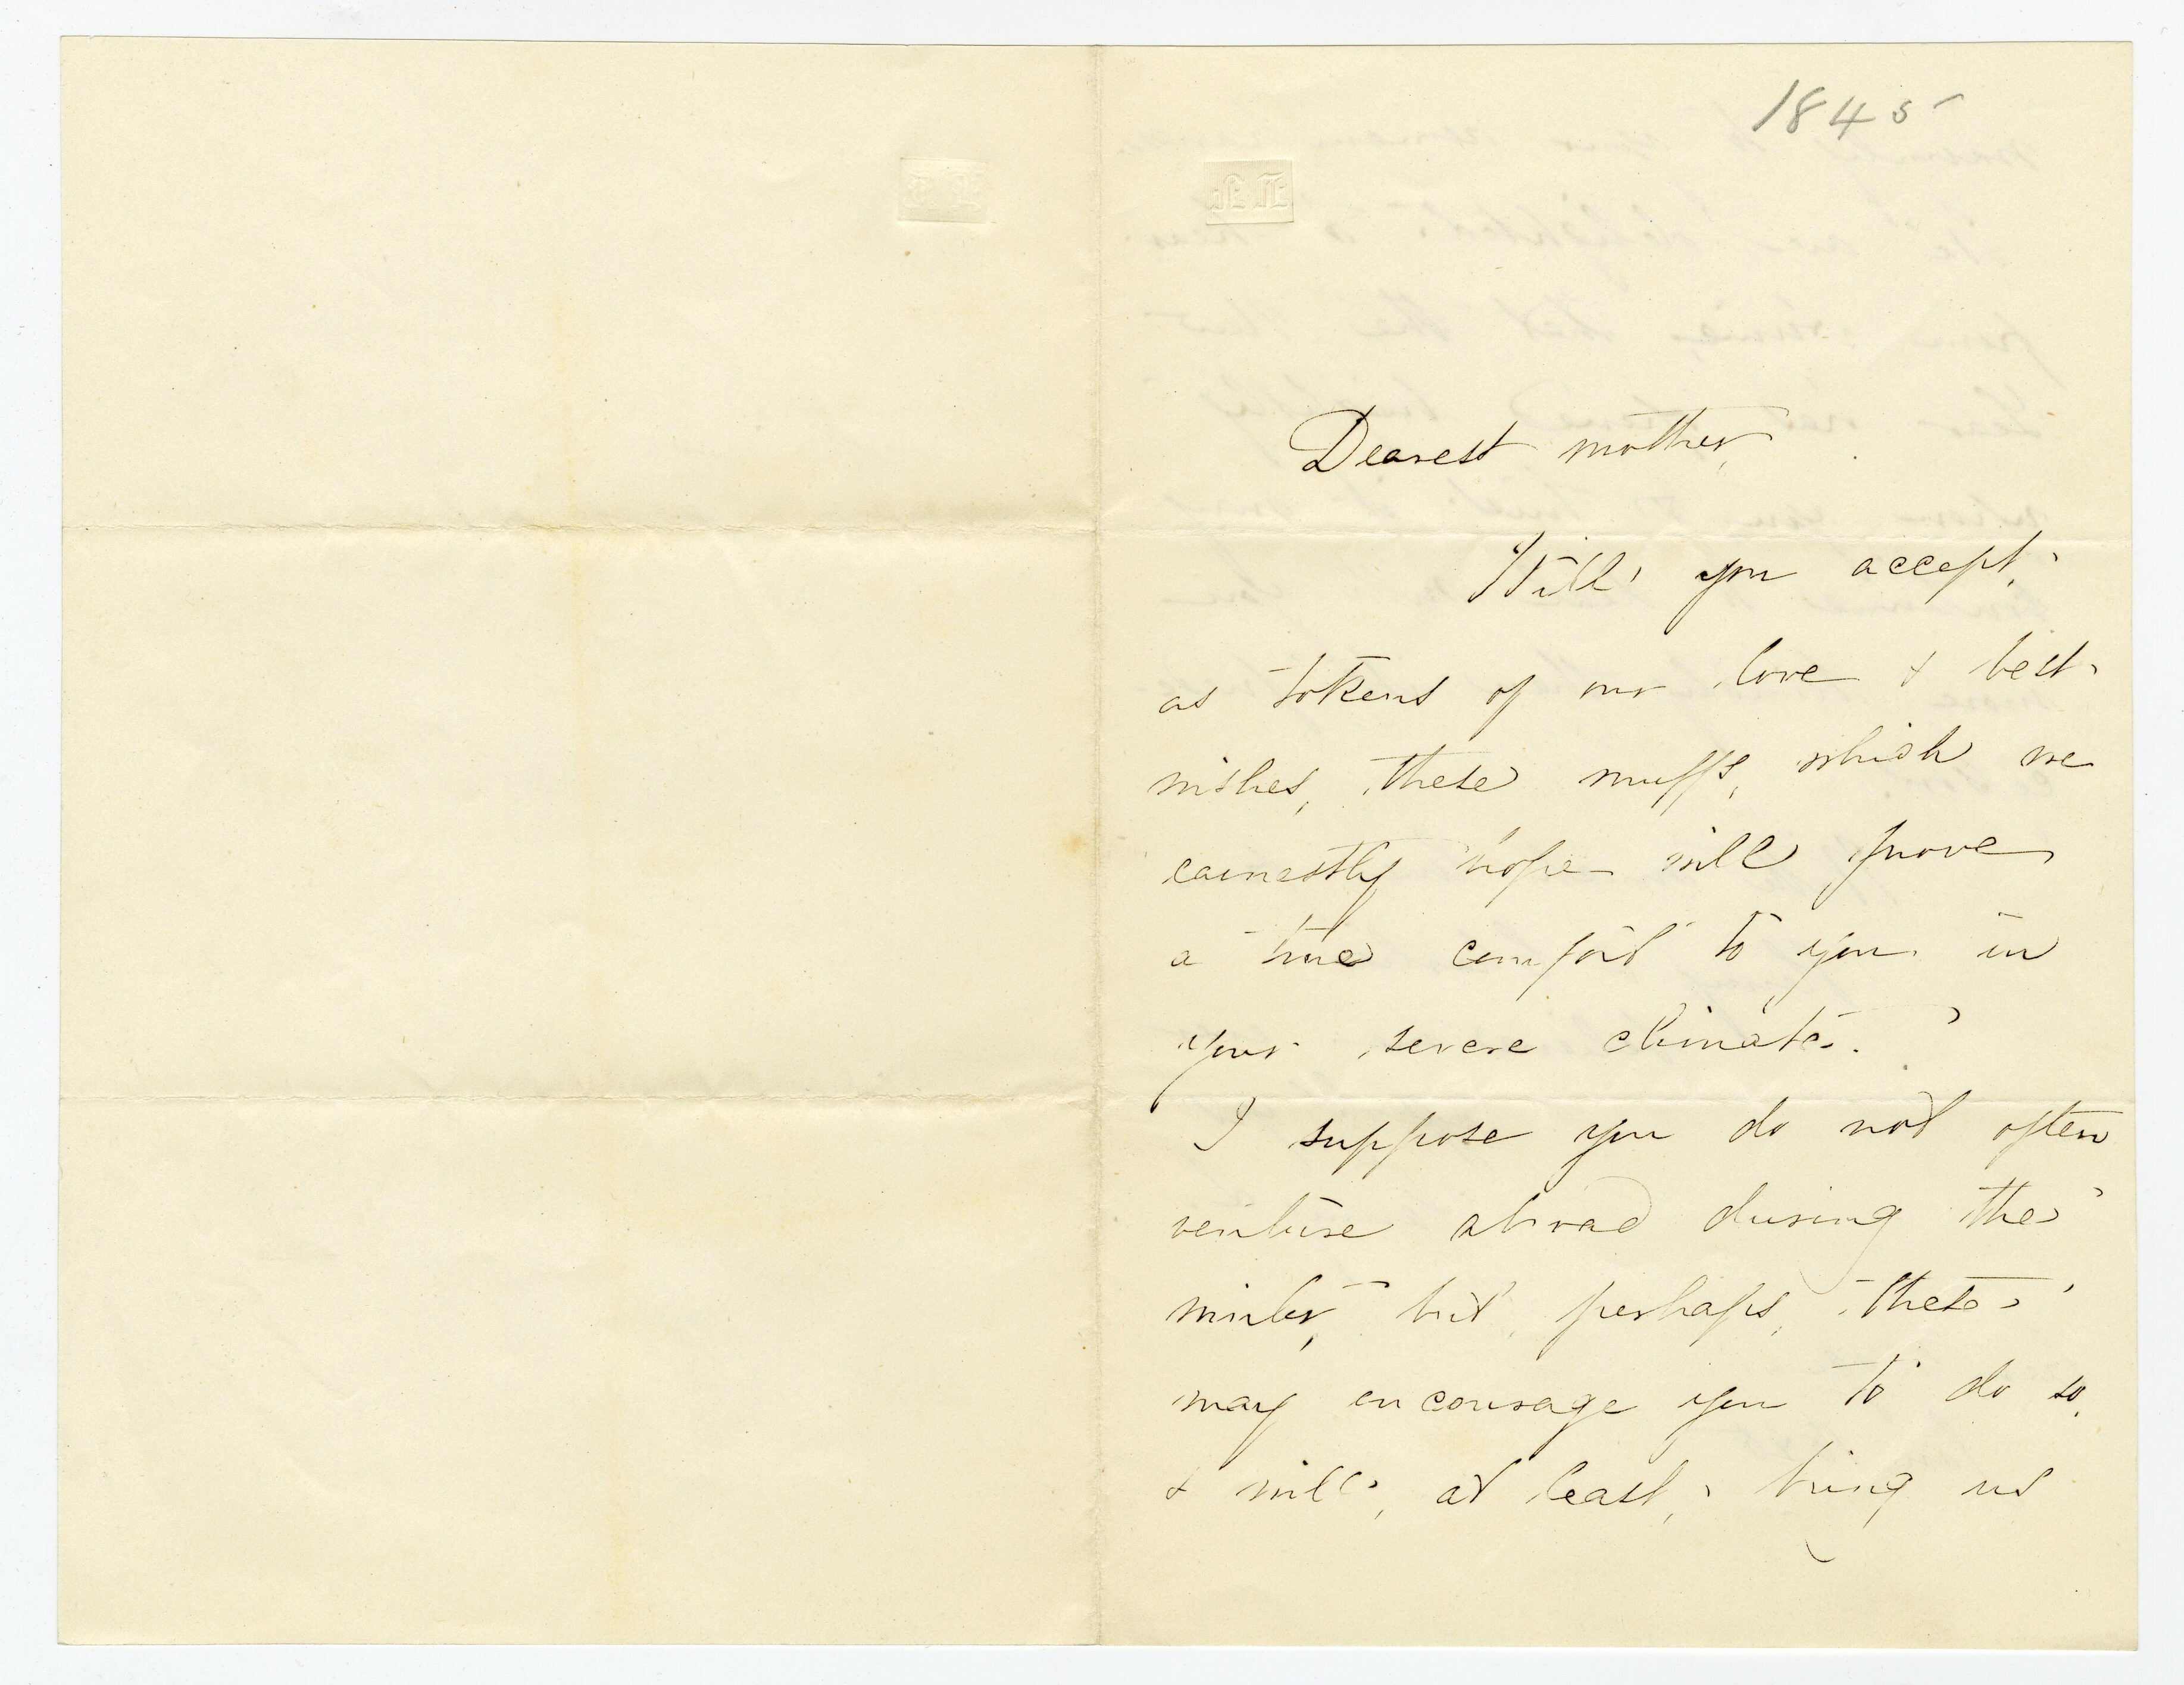 1845
Dearest mother,
Will you accept,
as tokens of our love & best
wishes, these muffs, which we
earnestly hope will prove
a true comfort to you in
your severe climate.
I suppose you do not often
venture abroad during the
winter, but, perhaps, these
may encourage you to do so,
& will, at least, bring us